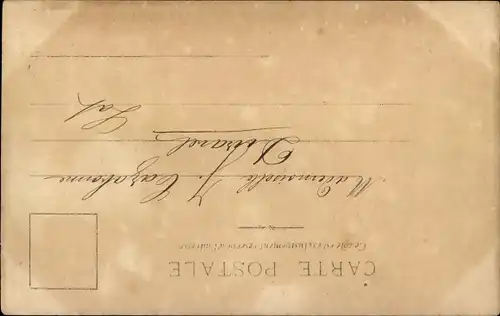 CARTE POSTALE
Ce côté est exclusivement réservé à l'adresse
Mademoiselle J. Cazalonne
Duravel
Lot